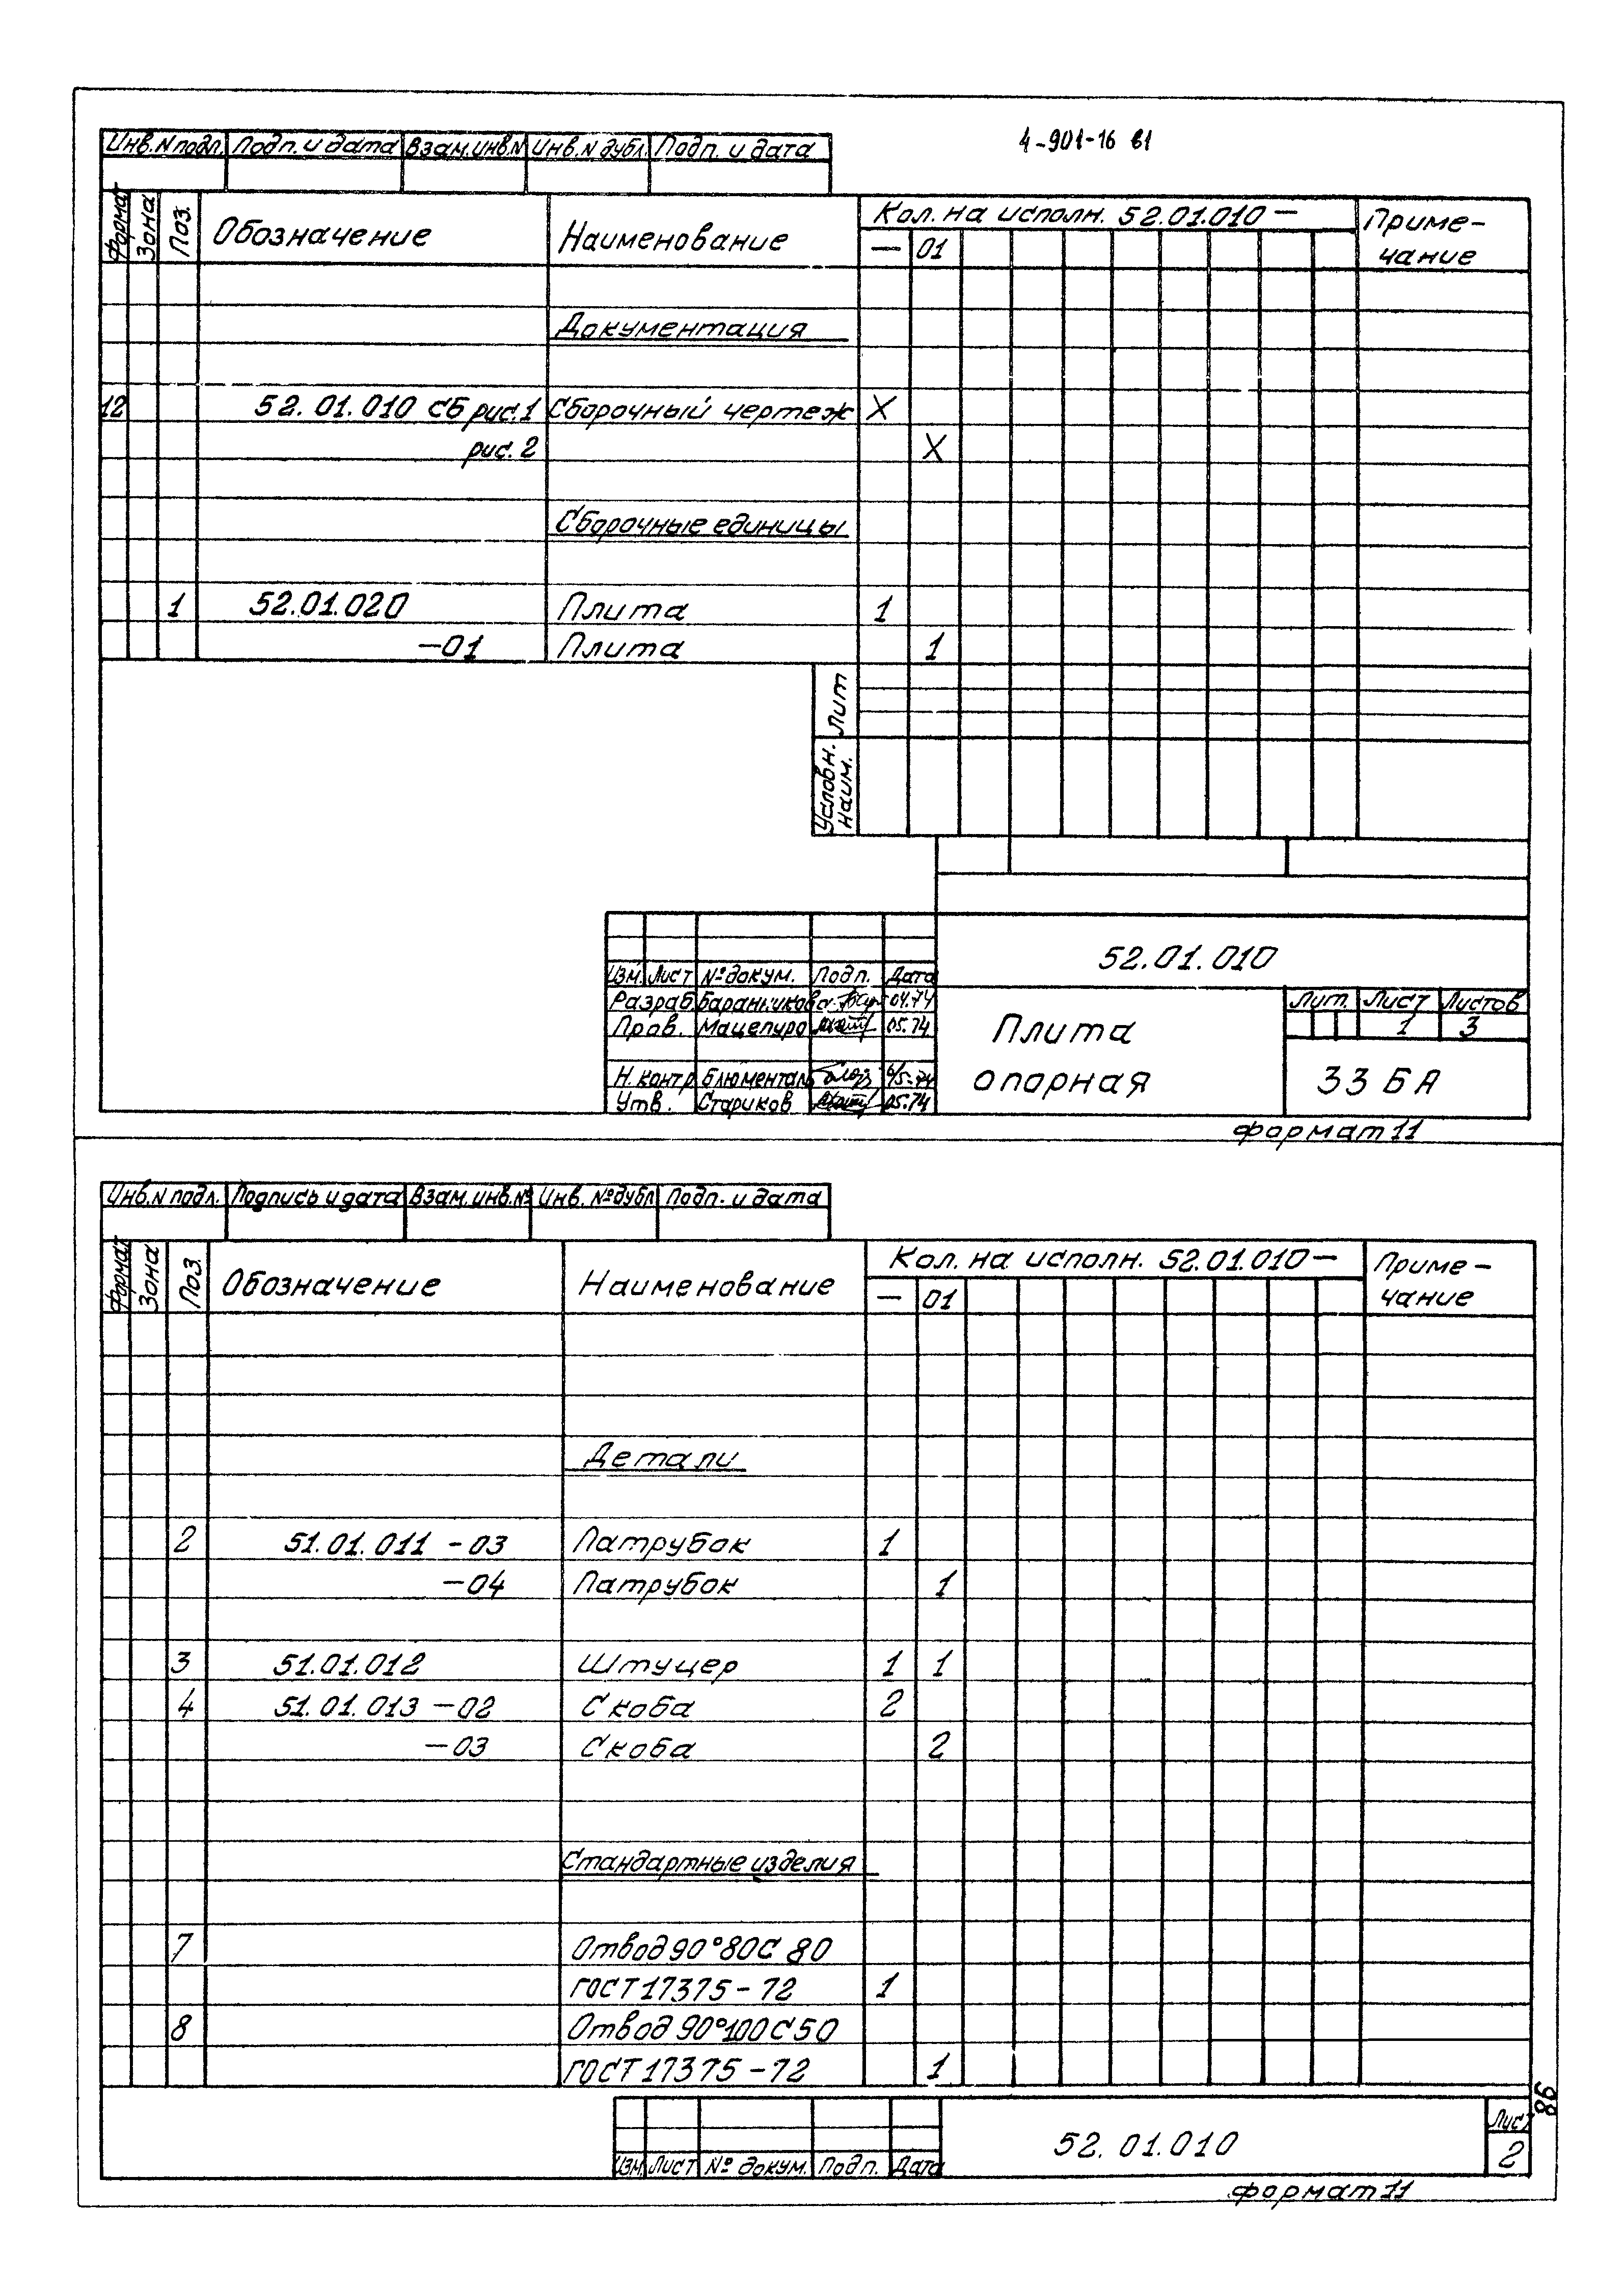 4-901-16 в1
Инв.N подл. Подп. и дата Взам.инв.N Инв.N дубл. Подп. и дата
Формат Зона Поз. Обозначение Наименование Кол. на исполн. 52.01.010 — Приме-
— 01 чание
Документация
12 52.01.010 СБ рис.1 Сборочный чертеж X
рис.2 X
Сборочные единицы
1 52.01.020 Плита 1
-01 Плита 1
Лит
Условн. наим.
52.01.010
Изм. Лист №докум. Подп. Дата
Разраб Баранникова 04.74
Пров. Мацепуро 05.74
Плита
Лит. Лист Листов
1 3
Н. контр Блюменталь 6/5-74
Утв. Стариков 05.74
опорная
33 БА
формат 11
Инв.N подл. Подпись и дата Взам.инв.№ Инв. №дубл Подп. и дата
Формат Зона Поз. Обозначение Наименование Кол. на исполн. 52.01.010 — Приме-
— 01 чание
Детали
2 51.01.011 -03 Патрубок 1
-04 Патрубок 1
3 51.01.012 Штуцер 1 1
4 51.01.013 -02 Скоба 2
-03 Скоба 2
Стандартные изделия
7 Отвод 90°80С 80
ГОСТ 17375-72 1
8 Отвод 90°100С50
ГОСТ 17375-72 1
98
52.01.010
Лист
2
Изм. Лист № докум. Подп. Дата
формат 11